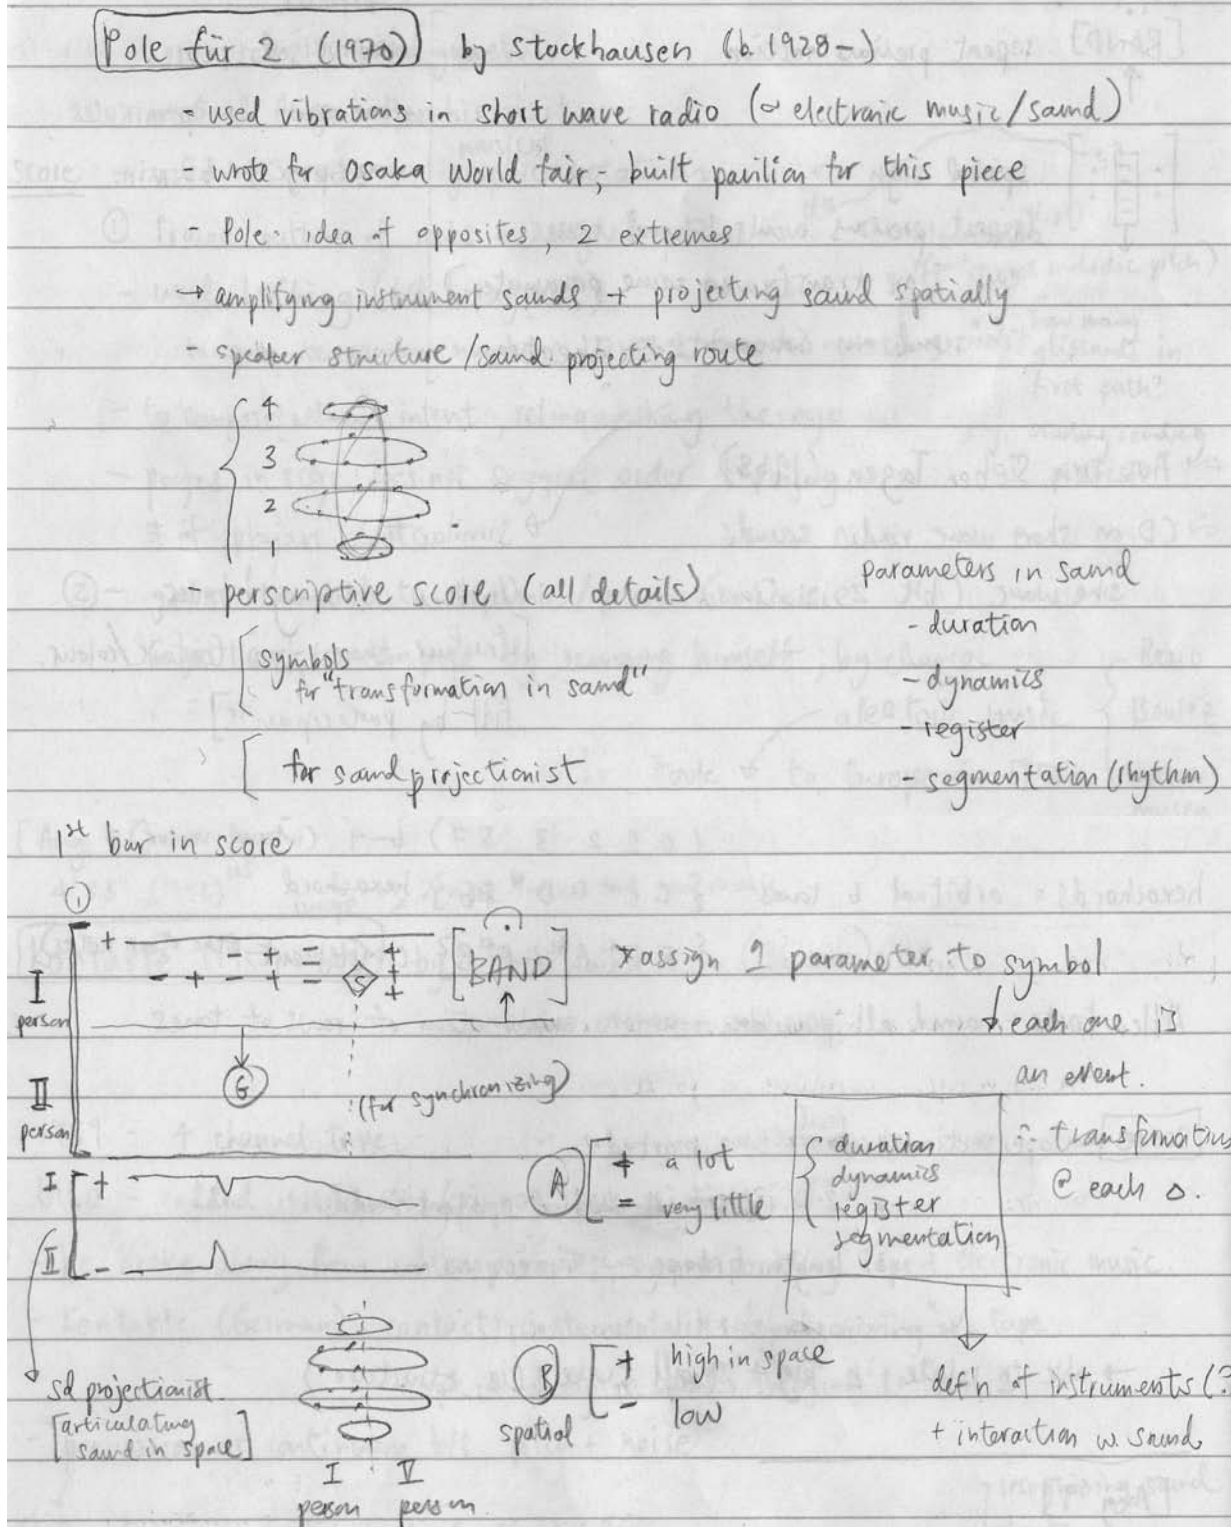 Pole für 2 (1970) by Stockhausen (b. 1928-)
- used vibrations in short wave radio (∞ electronic music/sound)
- wrote for Osaka World fair; built pavilion for this piece
- Pole: idea of opposites, 2 extremes
→ amplifying instrument sounds + projecting sound spatially
- speaker structure / sound projecting route
4
3
2
1
- perscriptive score (all details)
symbols
for "transformation in sound"
for sound projectionist
parameters in sound
- duration
- dynamics
- register
- segmentation (rhythm)
1st bar in score
①
I
person
+
- + =  +
- + - + = S + +
[BAND]
* assign 1 parameter to symbol
↓ each one is
an event.
∴ transformation
@ each ∆.
G
(for synchronizing)
II
person
I [ +
II [ -
A [ + a lot
= very little
duration
dynamics
register
segmentation
sd projectionist
[articulating
sound in space]
I V
person person
B [ + high in space
- low
spatial
def'n of instruments (?
+ interaction w. sound